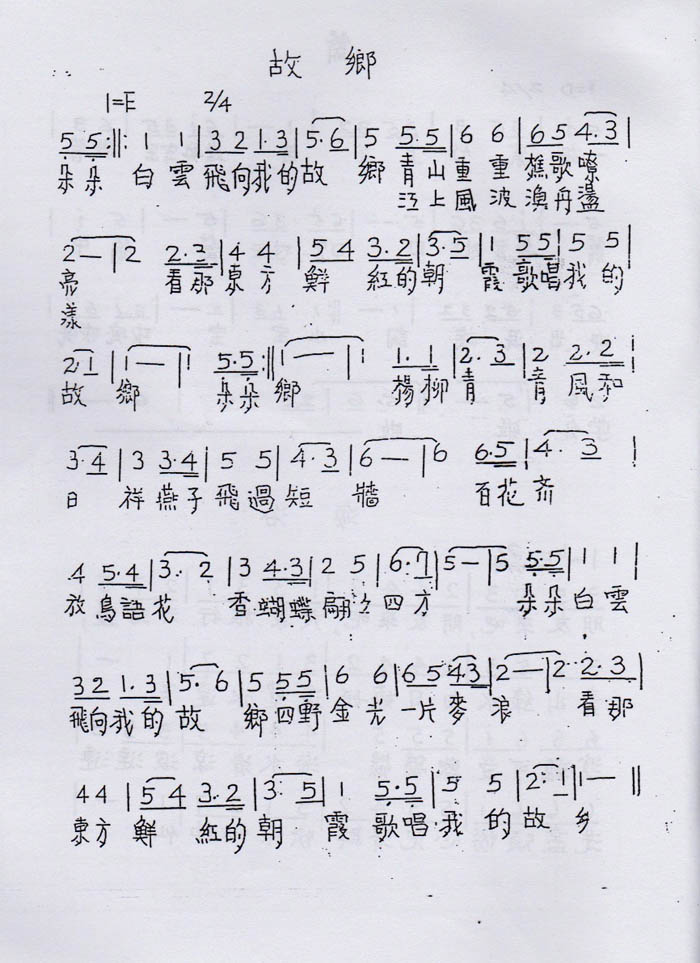 故 鄉
1=F 2/4
5·5:||: 1 1 |3 2 1·3|5·6|5 5·5|6 6|6 5 4·3|
朵朵 白雲 飛向我的故 鄉 青山重 重 樵歌嘹
江上風 波漁丹盪
2—|2 2·3|4 4 |5 4 3·2|3·5|1 5 5|5 5|
亮 看那東方 鮮 紅的朝 霞歌唱我的
漾
2·1|1—|1 5·5:||1—|1 1·1|2·3|2 2·2|
故 鄉 朵朵 鄉 楊柳青 青 風和
3·4|3 3·4|5 5|4·3|6—|6 6·5|4·3|
日 祥燕子飛過短 牆 百花齐
4 5·4|3·2|3 4·3|2 5|6·7|5—|5 5·5|1 1|
放鳥語花 香蝴蝶翩々四方 朵朵白雲
3 2 1·3|5·6|5 5·5|6 6|6 5 4·3|2—|2 2·3|
飛向我的故 鄉四野金光一片麥浪 看那
4 4 |5 4 3·2|3·5|1 5·5|5 5|2·1|1—||
東方 鮮 紅的朝 霞 歌唱我 的 故 乡